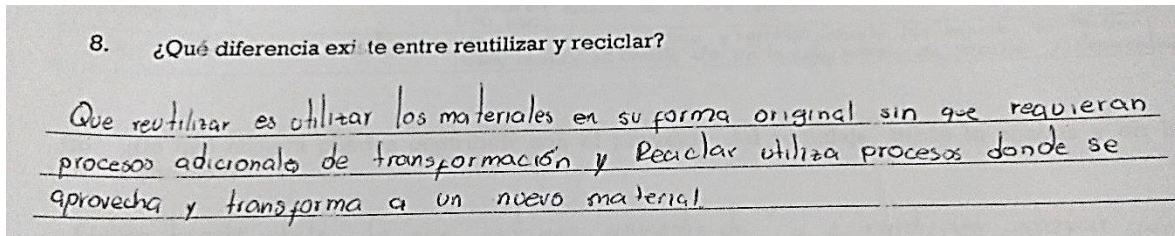 8. ¿Qué diferencia exi te entre reutilizar y reciclar?
Que reutilizar es utilizar los materiales en su forma original sin que requieran
procesos adicionales de transformación y Reciclar utiliza procesos donde se
aprovecha y transforma a un nuevo material